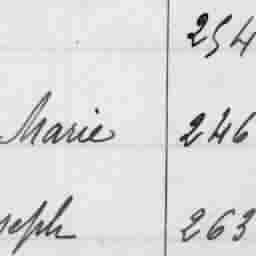 254
Marie 246
seph 263